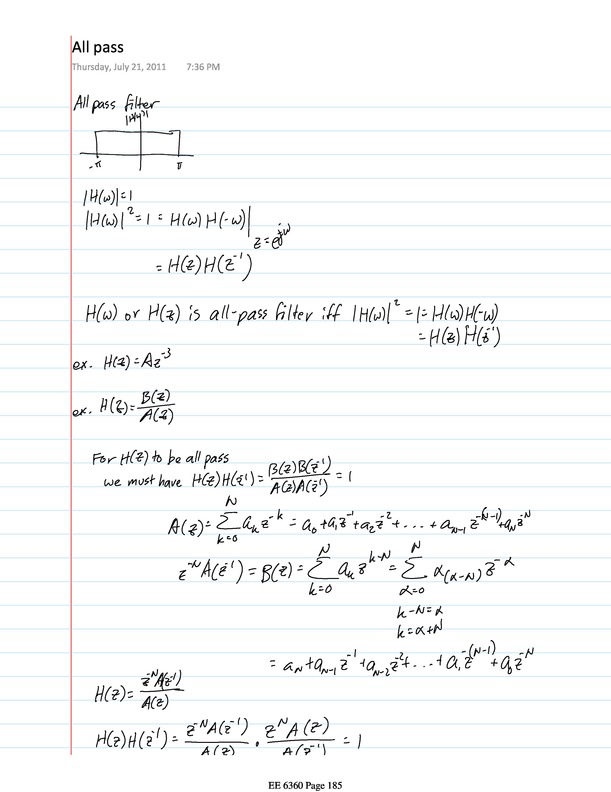 All pass
Thursday, July 21, 2011 7:36 PM
All pass filter
|H(ω)|
-π π
|H(ω)|=1
|H(ω)|²=1 = H(ω) H(-ω)|_{z=e^{jω}}
= H(z) H(z⁻¹)
H(ω) or H(z) is all-pass filter iff |H(ω)|² = 1 = H(ω)H(-ω)
= H(z) H(z⁻¹)
ex. H(z) = Az⁻³
ex. H(z) = B(z)/A(z)
For H(z) to be all pass
we must have H(z)H(z⁻¹) = B(z)B(z⁻¹)/A(z)A(z⁻¹) = 1
A(z) = ∑_{k=0}^{N} a_k z^{-k} = a₀ + a₁z⁻¹ + a₂z⁻² + ... + a_{N-1} z^{-(N-1)} + a_N z^{-N}
z^{-N} A(z⁻¹) = B(z) = ∑_{k=0}^{N} a_k z^{k-N} = ∑_{α=0}^{N} α_{(α-N)} z^{-α}
k-N=α
k=α+N
= a_N + a_{N-1} z⁻¹ + a_{N-2} z⁻² + ... + a₁ z^{-(N-1)} + a₀ z^{-N}
H(z) = z^{-N} A(z⁻¹)/A(z)
H(z)H(z⁻¹) = z^{-N} A(z⁻¹)/A(z) · z^N A(z)/A(z⁻¹) = 1
EE 6360 Page 185